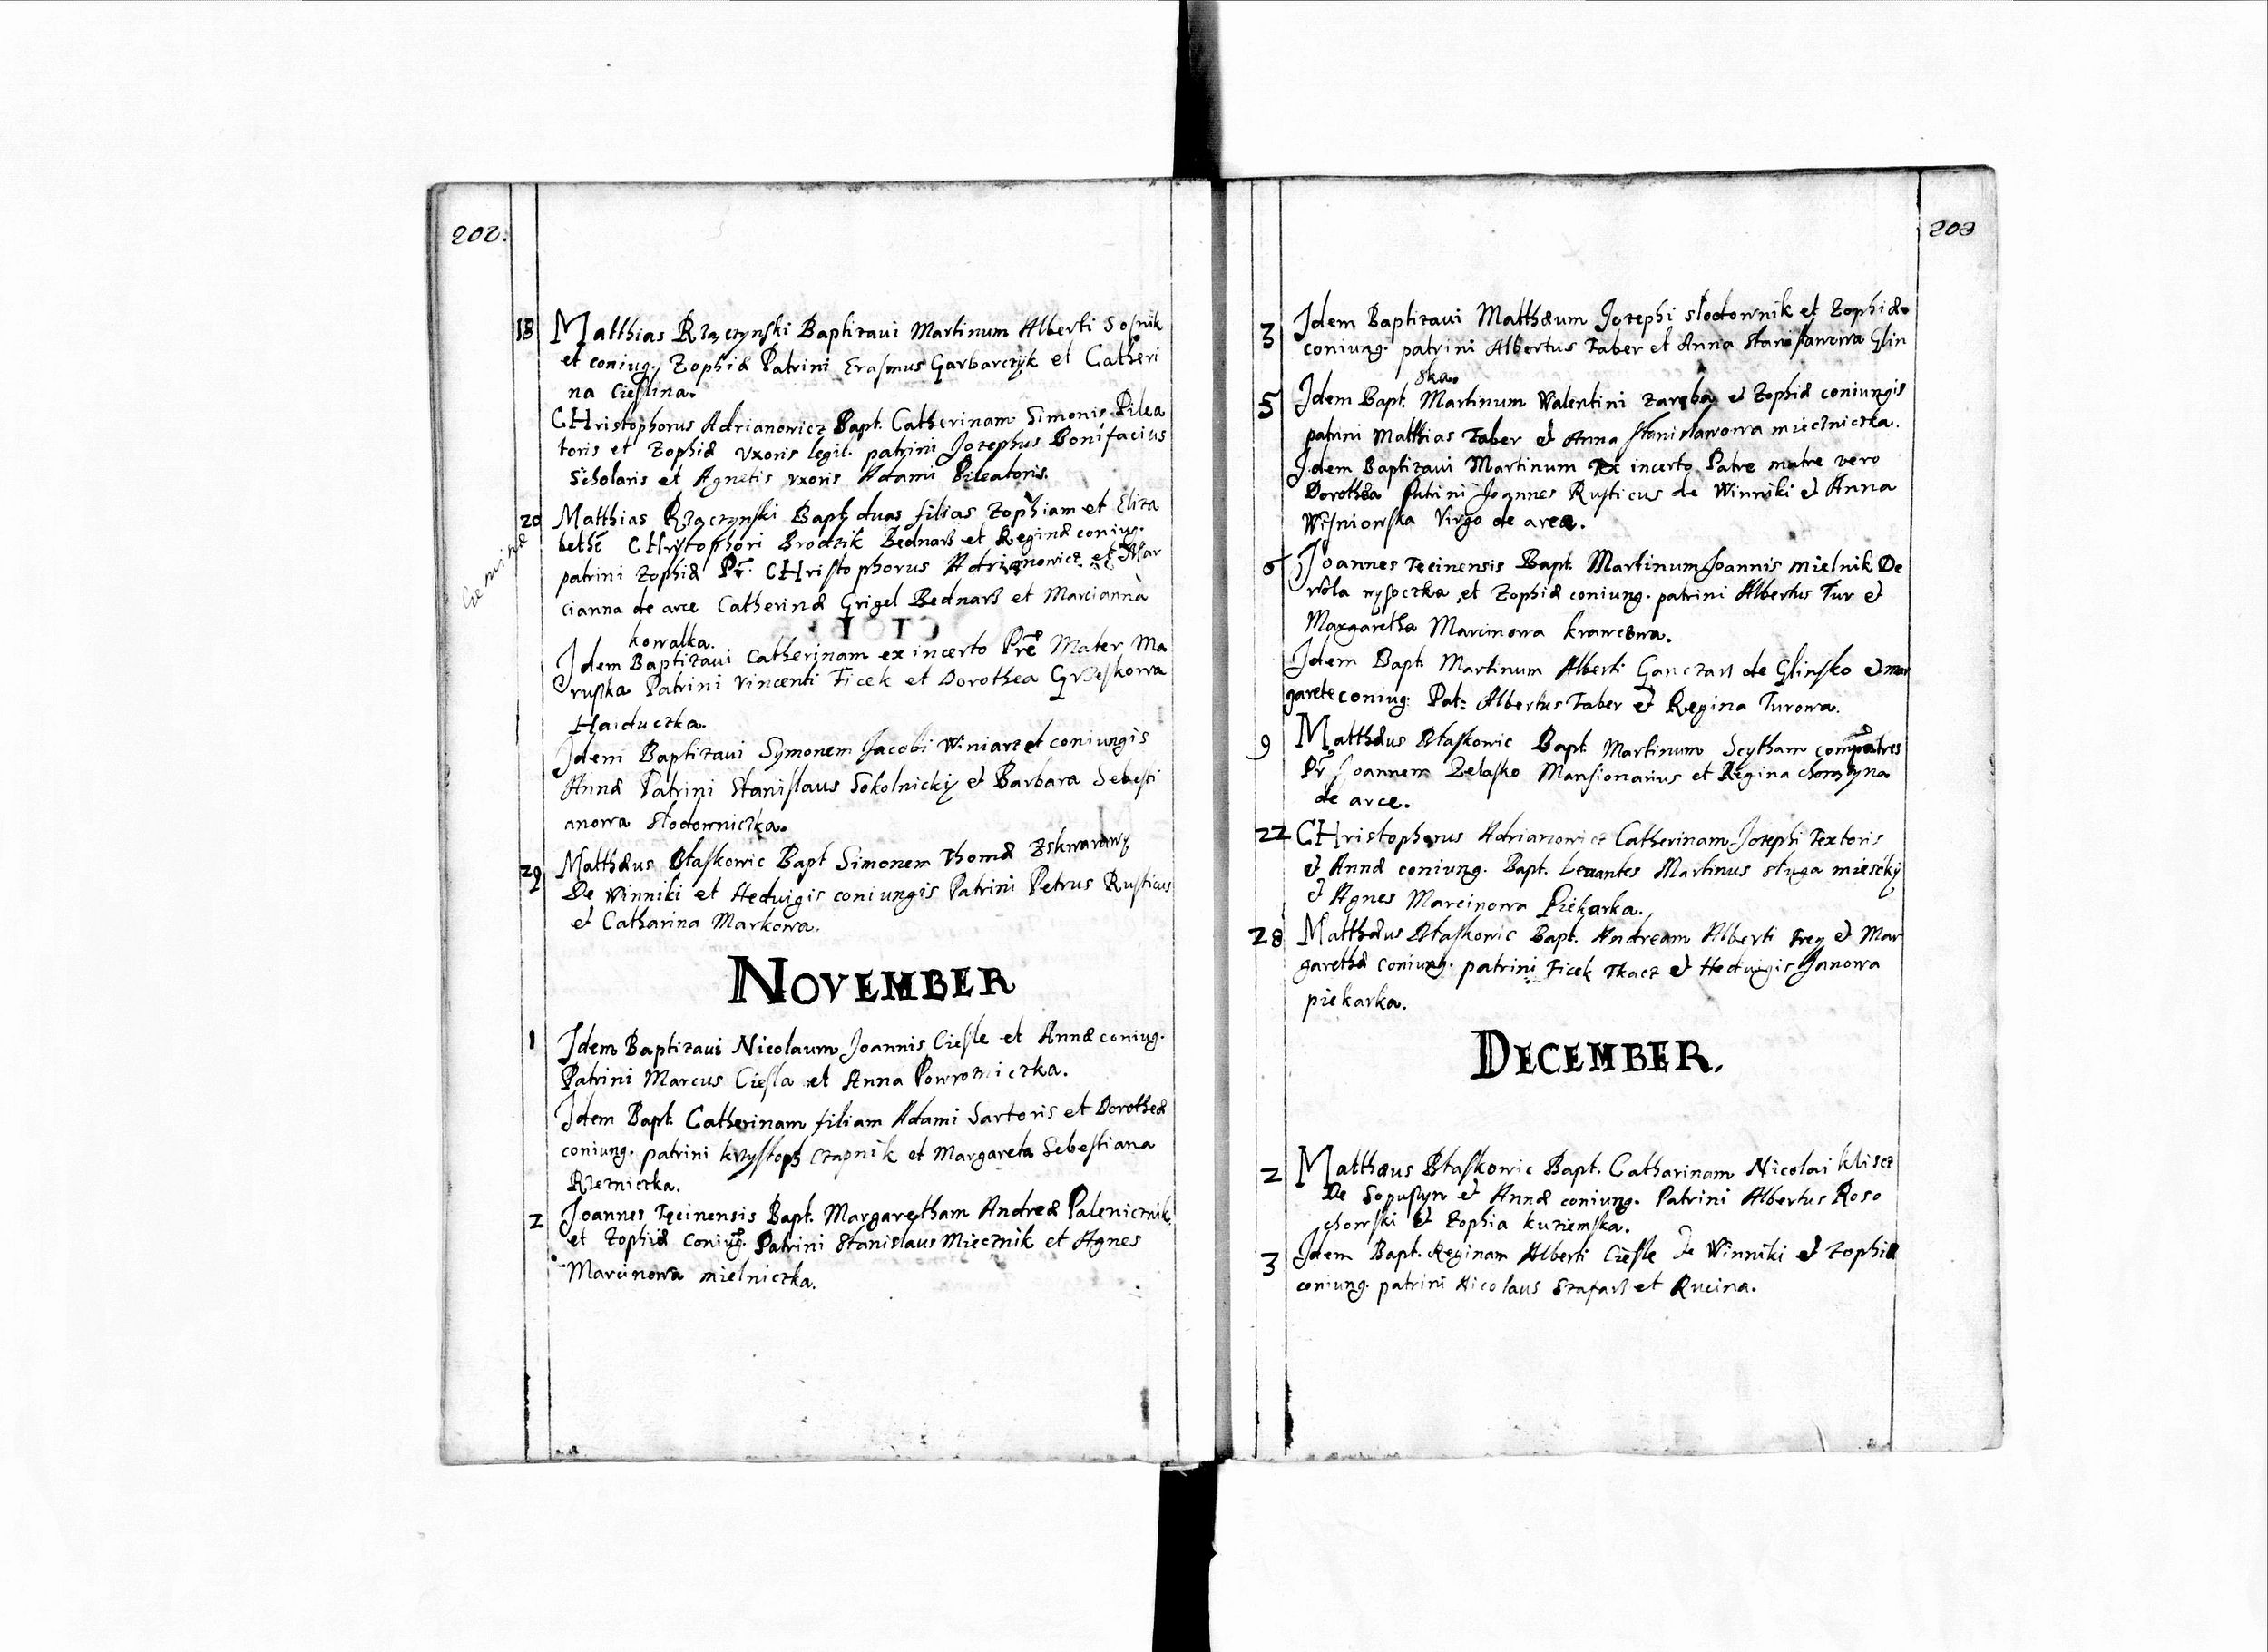 202.
18 Matthias Rzączynſki Baptizaui Martinum Alberti Soſnik
et coniug. Zophiæ Patrini Eraſmus Garbarczyk et Catheri
na Cieſlina.
CHristophorus Adrianowicz Bapt. Catherinam Simonis Pilea
toris et Zophiæ Vxoris legit. patrini Jozephus Bonifacius
Scholaris et Agnetis vxoris Adami Pileatoris.
20 Matthias Rzączynſki Bapt duas filias Zophiam et Eliza
bethē CHrystophori Brodzik Bednarz et Reginæ coniug.
Geminæ
patrini Zophiæ Pr. CHriſtophorus Adrianowicz et Mar
cianna de arce Catherinæ Grigel Bednarz et Marcianna
kowalka.
Jdem Baptizaui Catherinam ex incerto Prē Mater Ma
ruſka Patrini Vincenti Ficek et Dorothea Grzeſkowa
Haiduczka.
Jdem Baptizaui Symonem Jacobi Winiarz et coniungis
Annæ Patrini Staniſlaus Sokolnickij et Barbara Sebeſti
anowa Słodowniczka.
29 Matthæus Błaſkowic Bapt Simonem Thomæ Zskwarawy
De Winniki et Heduigis coniungis Patrini Petrus Ruſticus
et Catharina Markowa.
NOVEMBER
1 Jdem Baptizaui Nicolaum Joannis Cieſle et Annæ coniug.
Patrini Marcus Cieſla et Anna Powrozniczka.
Jdem Bapt. Catherinam filiam Adami Sartoris et Dorotheæ
coniung. patrini krzyſtoph Czapnik et Margareta Sebeſtiana
Rzezniczka.
2 Joannes Tęcinensis Bapt. Margaretham Andreæ Palenicznik
et Zophiæ Coniug. Patrini Stanislaus Miecznik et Agnes
Marcinowa mielniczka.
203
3 Jdem Baptizaui Matthæum Jozephi słodownik et Zophiæ
coniung. patrini Albertus Faber et Anna Staniſlawowa Glin
ska.
5 Jdem Bapt. Martinum Valentini Zaręba et Zophiæ coniungis
patrini Matthias Faber et Anna Staniſlawowa mieczniczka.
Jdem Baptizaui Martinum Ex incerto Patre matre vero
Dorothea Patrini Joannes Ruſticus de Winniki et Anna
Wiſniowſka Virgo de arce.
6 Joannes Tęcinensis Bapt. Martinum Joannis mielnik De
wola wysoczka et Zophiæ coniung. patrini Albertus Tur et
Margaretha Marcinowa krawcowa.
Jdem Bapt. Martinum Alberti Ganczarz de Glinſko et mar
garete coniug: Pat: Albertus Faber et Regina Turowa.
9 Matthæus Błaſkowic Bapt Martinum Scytham compatres
Pr Joannem Zelaſko Manſionarius et Regina
de arce.
22 CHristophorus Adrianowicz Catherinam Jozephi Textoris
et Annæ coniung. Bapt. Levantes Martinus sługa mieſckij
et Agnes Marcinowa Piekarka.
28 Matthæus Błaſkowic Bapt. Andream Alberti Frey et Mar
garethæ coniung. patrini Ficek Tkacz et Heduigis Janowa
piekarka.
DECEMBER.
2 Matthæus Błaſkowic Bapt. Catharinam Nicolai klisez
De Sopuſzyn et Annæ coniung. Patrini Albertus Roso
chowſki et Zophia kuziemſka.
3 Jdem Bapt. Reginam Alberti Cieſle De Winniki et Zophiæ
coniung. patrini Nicolaus Szafarz et Rucina.